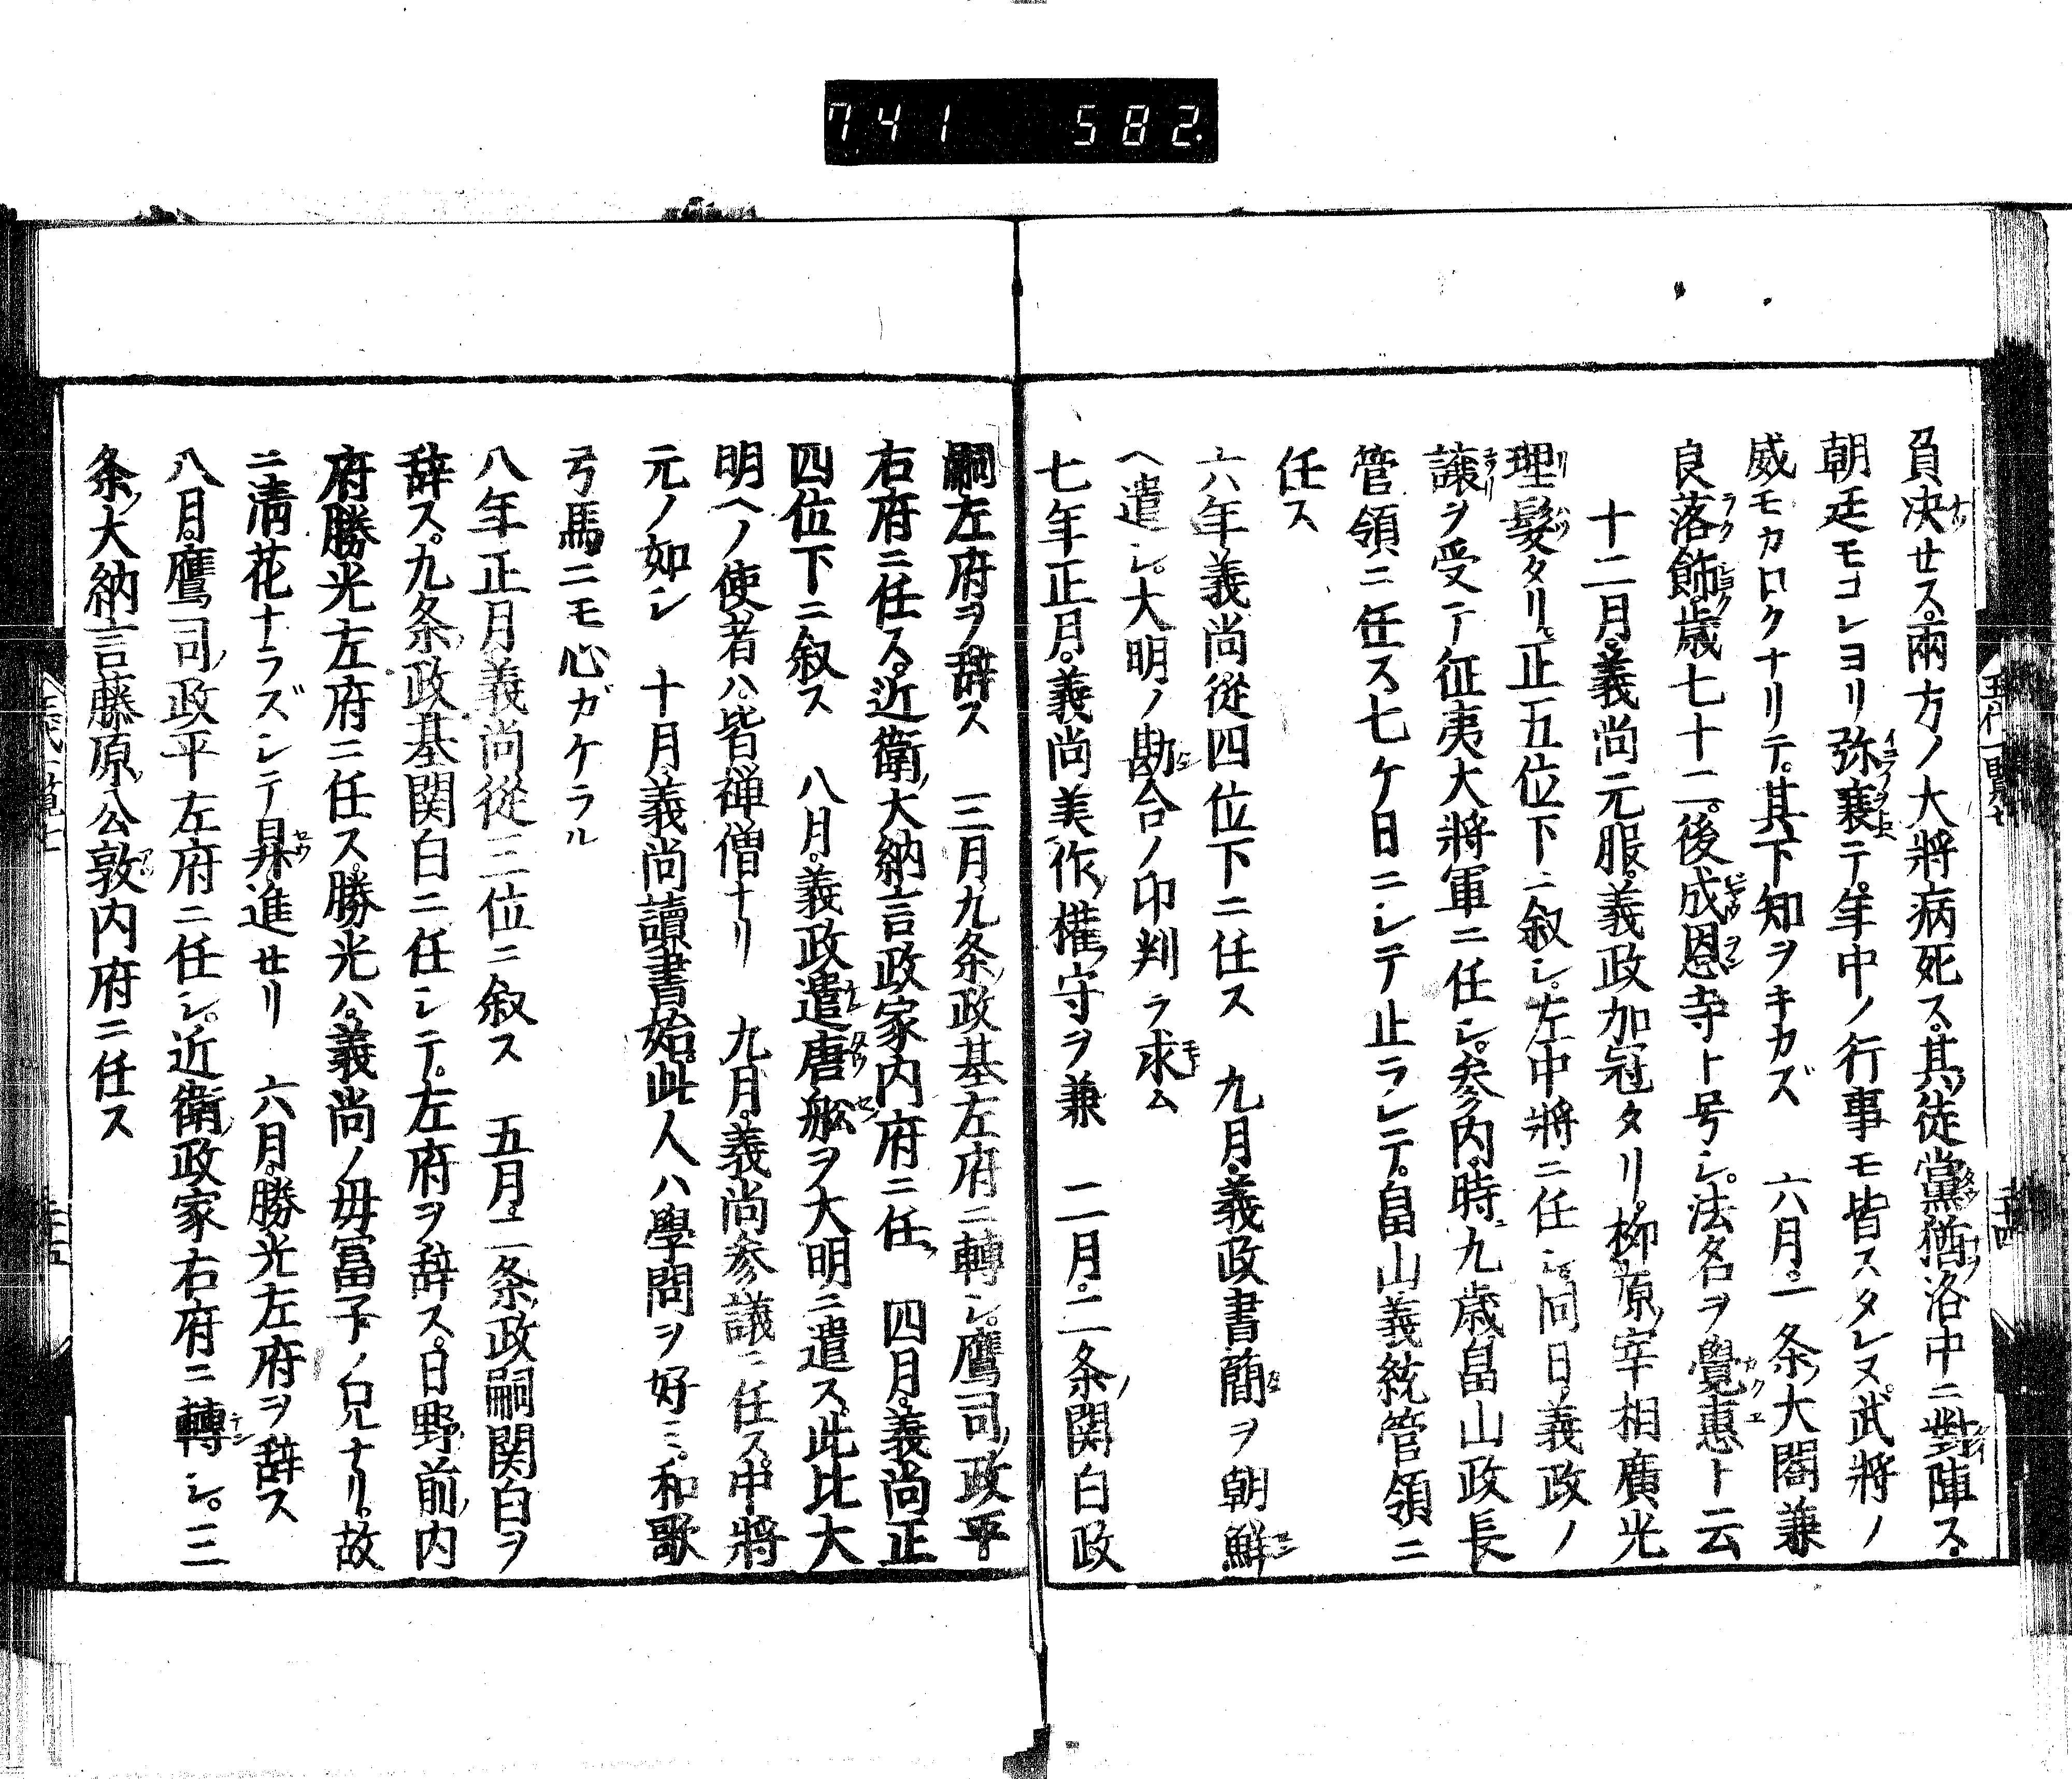 741 582
負決セス。兩方ノ大將病死ス。其徒黨猶洛中ニ對陣ス。
朝廷モコレヨリ弥衰テ。年中ノ行事モ皆スタレヌ。武將ノ
威モカロクナリテ。其下知ヲキカズ 六月。一条ノ大閤兼
良落飾歳七十二。後成恩寺ト号シ。法名ヲ覺惠ト云
十二月。義尚元服。義政加冠タリ。柳原宰相廣光
理髪タリ。正五位下ニ叙シ。左中將ニ任シ。同日義政ノ
譲ヲ受テ征夷大將軍ニ任シ。参内。時ニ九歳畠山政長
管領ニ任ス七ケ日ニシテ止ラレテ。畠山義統管領ニ
任ス
六年義尚從四位下ニ任ス 九月。義政書簡ヲ朝鮮
ヘ遣シ。大明ノ勘合ノ印判ヲ求ム
七年正月。義尚美作ノ權守ヲ兼 二月。二条ノ関白政
嗣左府ヲ辞ス 三月九条ノ政基左府ニ轉シ。鷹司ノ政平。
右府ニ任ス。近衛ノ大納言政家内府ニ任ス 四月。義尚正
四位下ニ叙ス 八月。義政遣唐舩ヲ大明ニ遣ス。此比大
明ヘノ使者ハ。皆禅僧ナリ 九月。義尚参議ニ任ス。中將
元ノ如シ 十月義尚讀書始。此人ハ學問ヲ好ミ。和歌
弓馬ニモ心ガケラル
八年正月義尚從三位ニ叙ス 五月。二条ノ政嗣関白ヲ
辞ス。九条ノ政基関白ニ任シテ。左府ヲ辞ス。日野ノ前ノ内
府勝光左府ニ任ス。勝光ハ。義尚ノ母冨子ノ兄ナリ。故
ニ清花ナラズシテ昇進セリ 六月。勝光左府ヲ辞ス
八月。鷹司ノ政平左府ニ任シ。近衛ノ政家右府ニ轉シ。三
条ノ大納言藤原ノ公敦内府ニ任ス